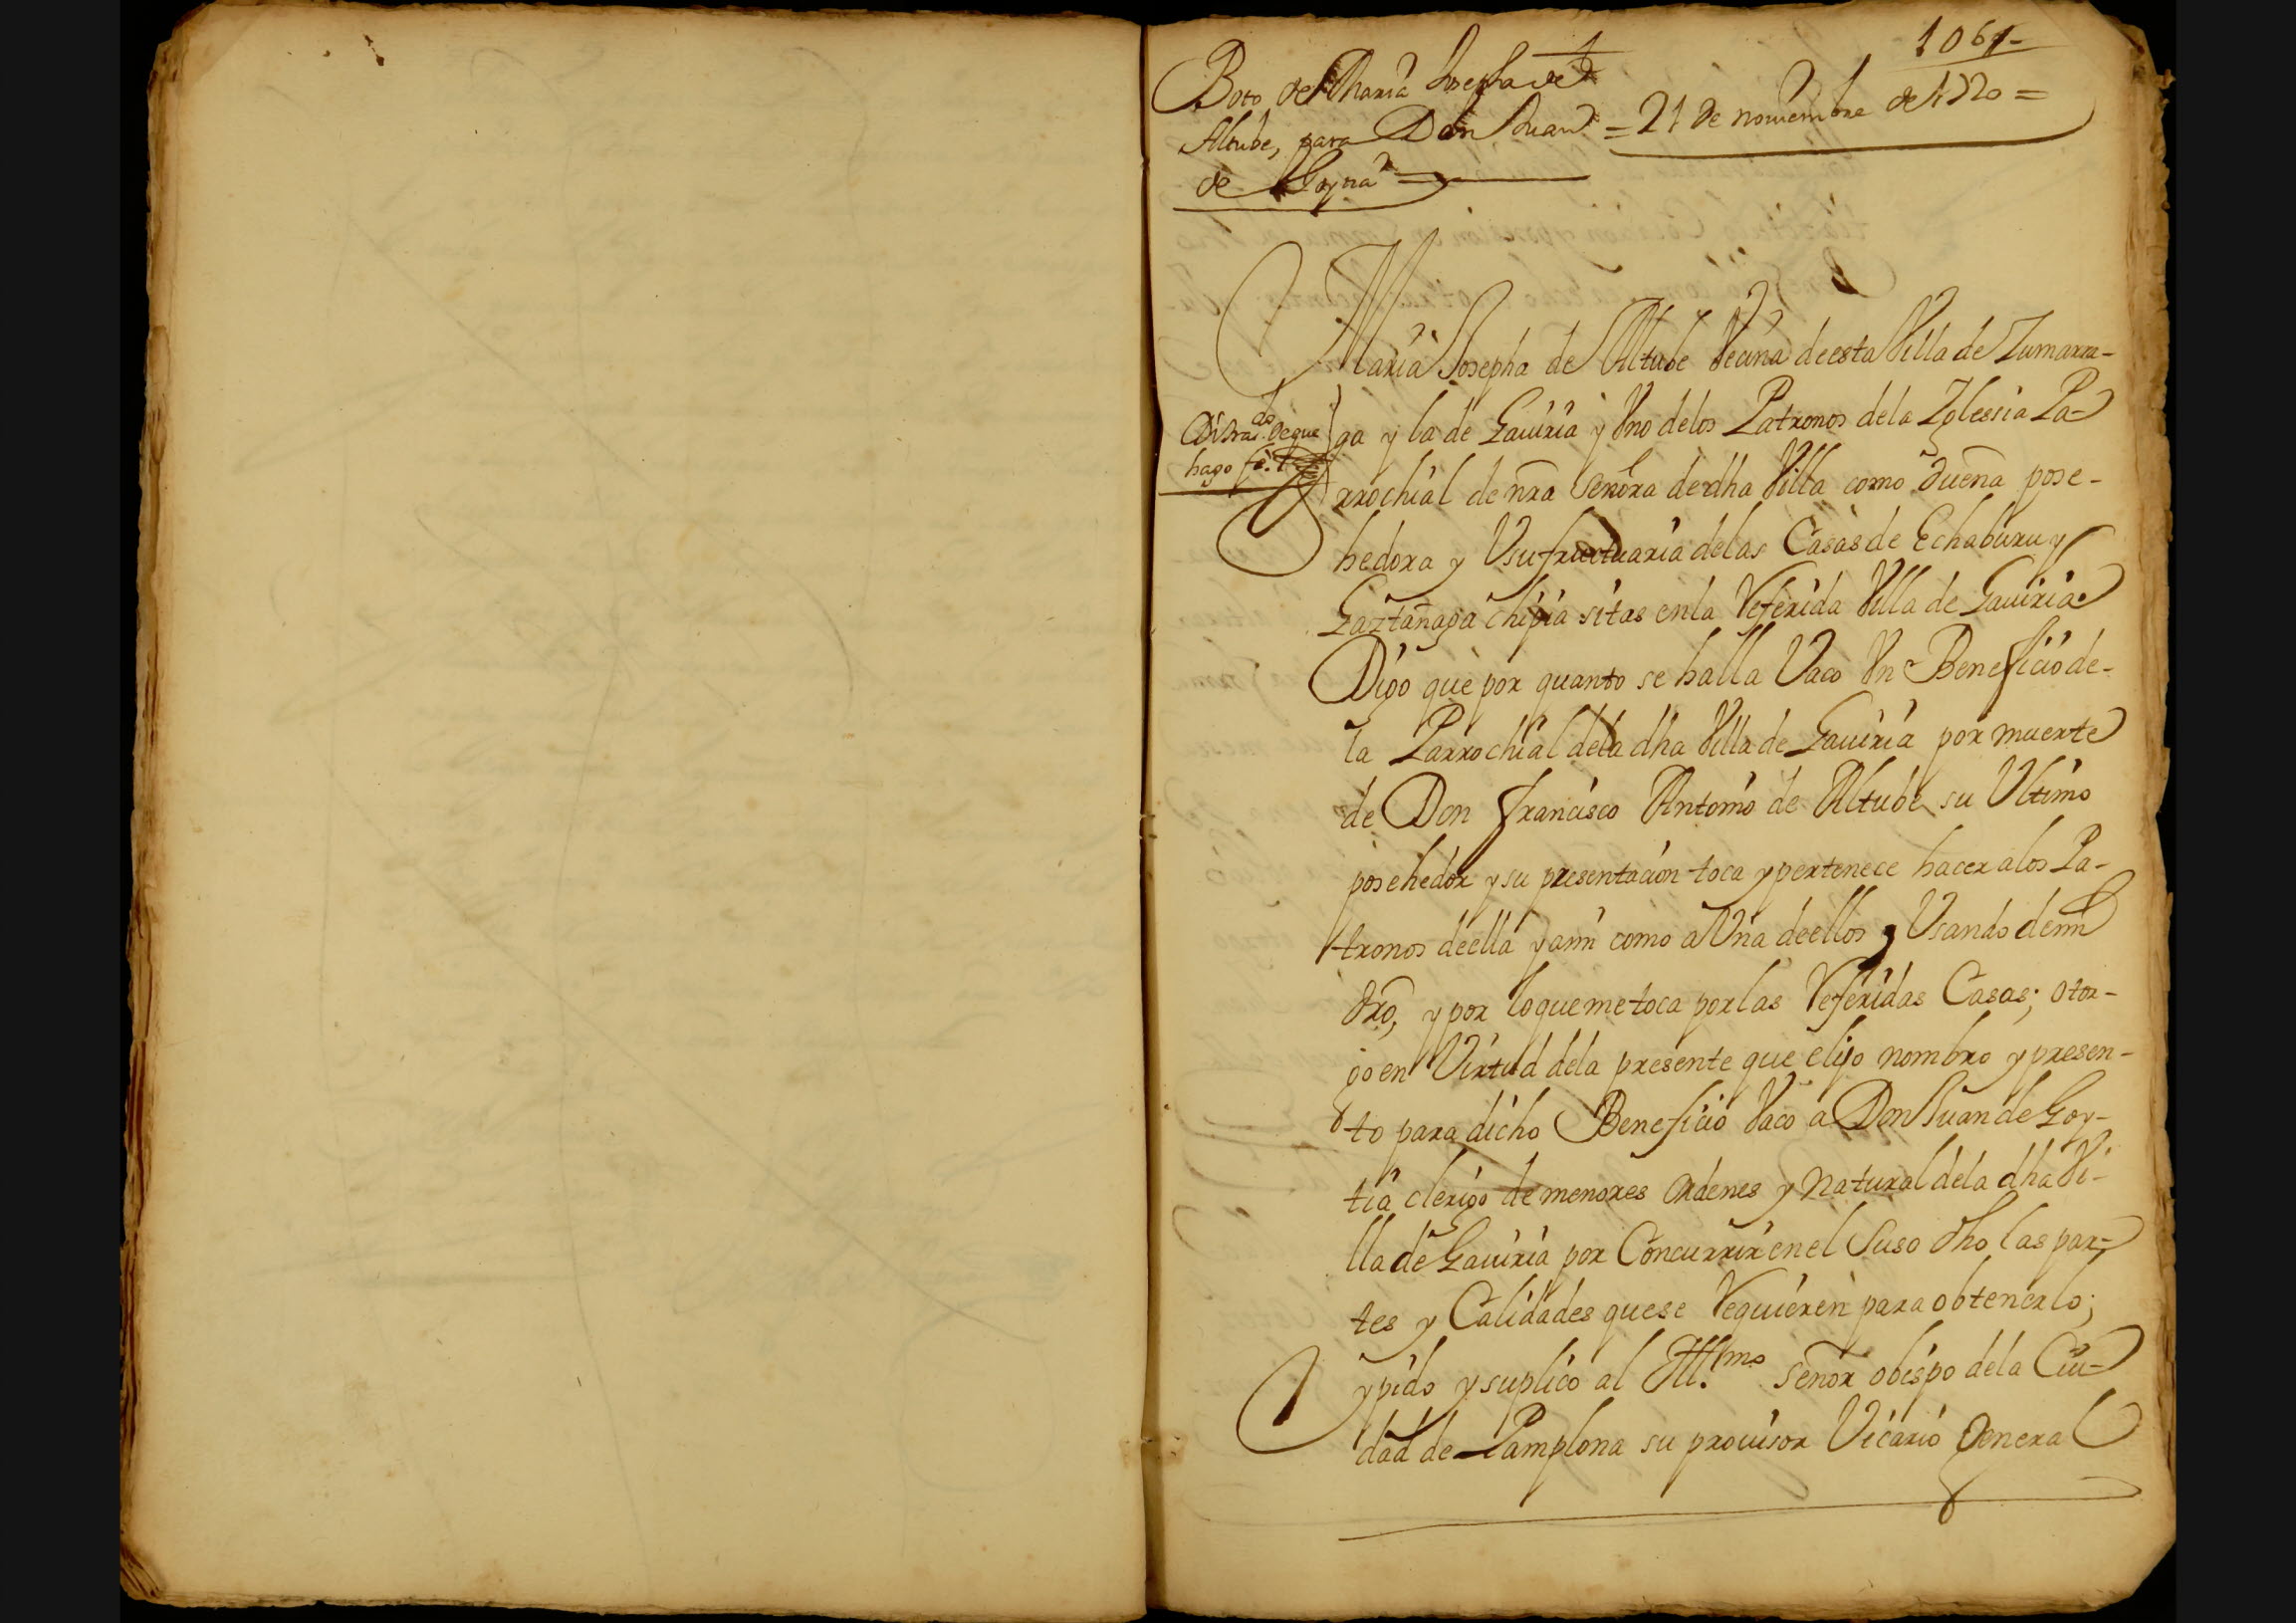 106
Boto de Maria Josepha de
Altube, para Don Juan = 21 de nouiembre de 1720 =
de Goyna =
Maria Josepha de Altube Vecina de esta Villa de Zumarra-
di tras.do de que
hago fe.
ga y la de Gauiria y Vno delos Patronos dela Yglessia Pa-
rrochial de nra Señora de dha Villa como dueña pose-
hedora y Vsufructuaria delas Casas de Echaburu y
Gaztañaga chipia sitas en la Referida Villa de Gauiria
Digo que por quanto se halla Vaco Vn Beneficio de-
la Parrochial dela dha Villa de Gauiria por muerte
de Don Francisco Antonio de Altube su Vltimo
posehedor y su presentacion toca y pertenece hacer alos Pa-
tronos de ella y ami como a Vna de ellos y Vsando demi
dro, y por loque me toca por las Referidas Casas; otor-
go en Virtud dela presente que elijo nombro y presen-
to para dicho Beneficio Vaco a Don Juan de Goy-
tia clerigo de menores ordenes y natural dela dha Vi-
lla de Gauiria por Concurrir en el Suso dho las par-
tes y Calidades quese Requieren para obtenerlo;
y pido y suplico al Ill.mo señor obispo dela Ciu-
dad de Pamplona su prouisor Vicario General